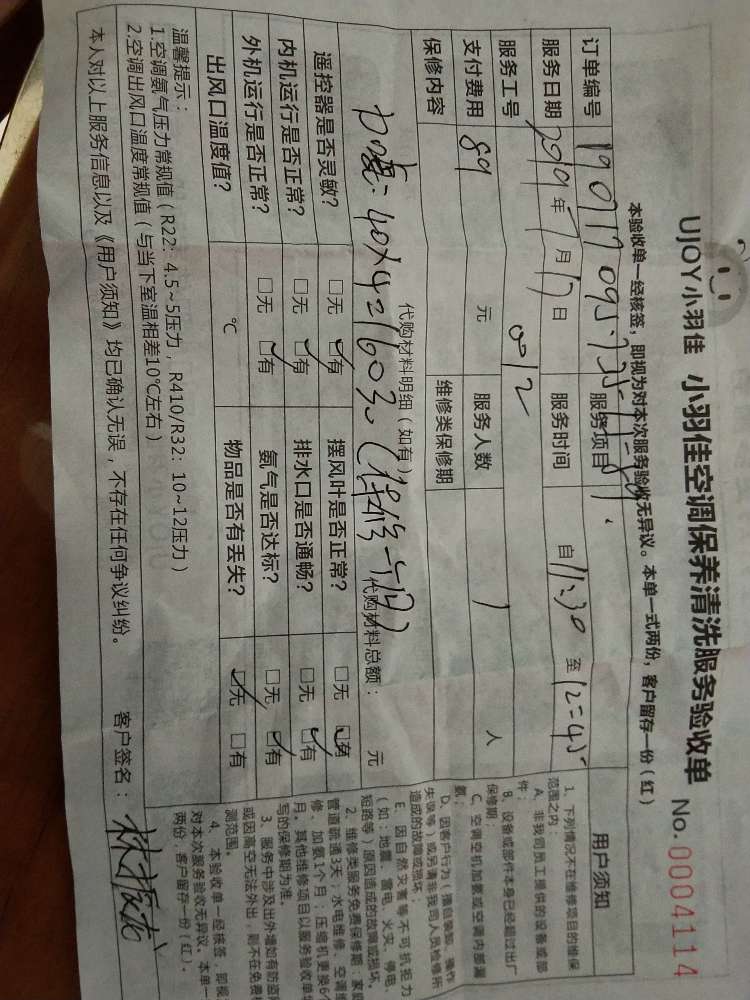 UJOY小羽佳 小羽佳空调保养清洗服务验收单 No.0004114
本验收单一经核签，即视为对本次服务验收无异议。本单一式两份，客户留存一份（红）
订单编号 服务项目
服务日期 2019年7月17日 服务时间 自11:30至12:45
服务工号 012
支付费用 89 元 服务人数 1 人
保修内容 维修类保修期
代购材料明细（如有） 代购材料总额： 元
加 40×4=160元
遥控器是否灵敏？ □无 ☑有 摆风叶是否正常？ □无 ☑有
内机运行是否正常？ □无 ☑有 排水口是否通畅？ □无 ☑有
外机运行是否正常？ □无 ☑有 氨气是否达标？ □无 ☑有
出风口温度值？ ℃ 物品是否有丢失？ ☑无 □有
温馨提示：
1.空调氨气压力常规值（R22：4.5~5压力，R410/R32：10~12压力）
2.空调出风口温度常规值（与当下室温相差10℃左右）
本人对以上服务信息以及《用户须知》均已确认无误，不存在任何争议纠纷。 客户签名：
用户须知
1、下列情况不在维修项目的维保
范围之内：
A、非我司员工提供的设备或部
件；
B、设备或部件本身已经超过出厂
保修期；
C、空调空机加氨或空调内部漏
氨；
D、因客户行为（擅自装卸、操作
失误等）或另请非我司人员检修所
造成的故障或损坏；
E、因自然灾害等不可抗拒力
（如：地震、雷电、火灾、停电、
短路等）原因造成的故障或损坏。
2、维修类服务免费保修期：家庭
管道疏通3天；水电维修、空调维
修、加氨1个月；压缩机更换6个
月。其他维修项目以服务验收单
写的保修期为准。
3、服务中涉及出外墙如有防盗
或因高空无法外出，则不在免费
测范围。
4、本验收单一经核签，即视
对本次服务验收无异议。本单一
两份，客户留存一份（红）。